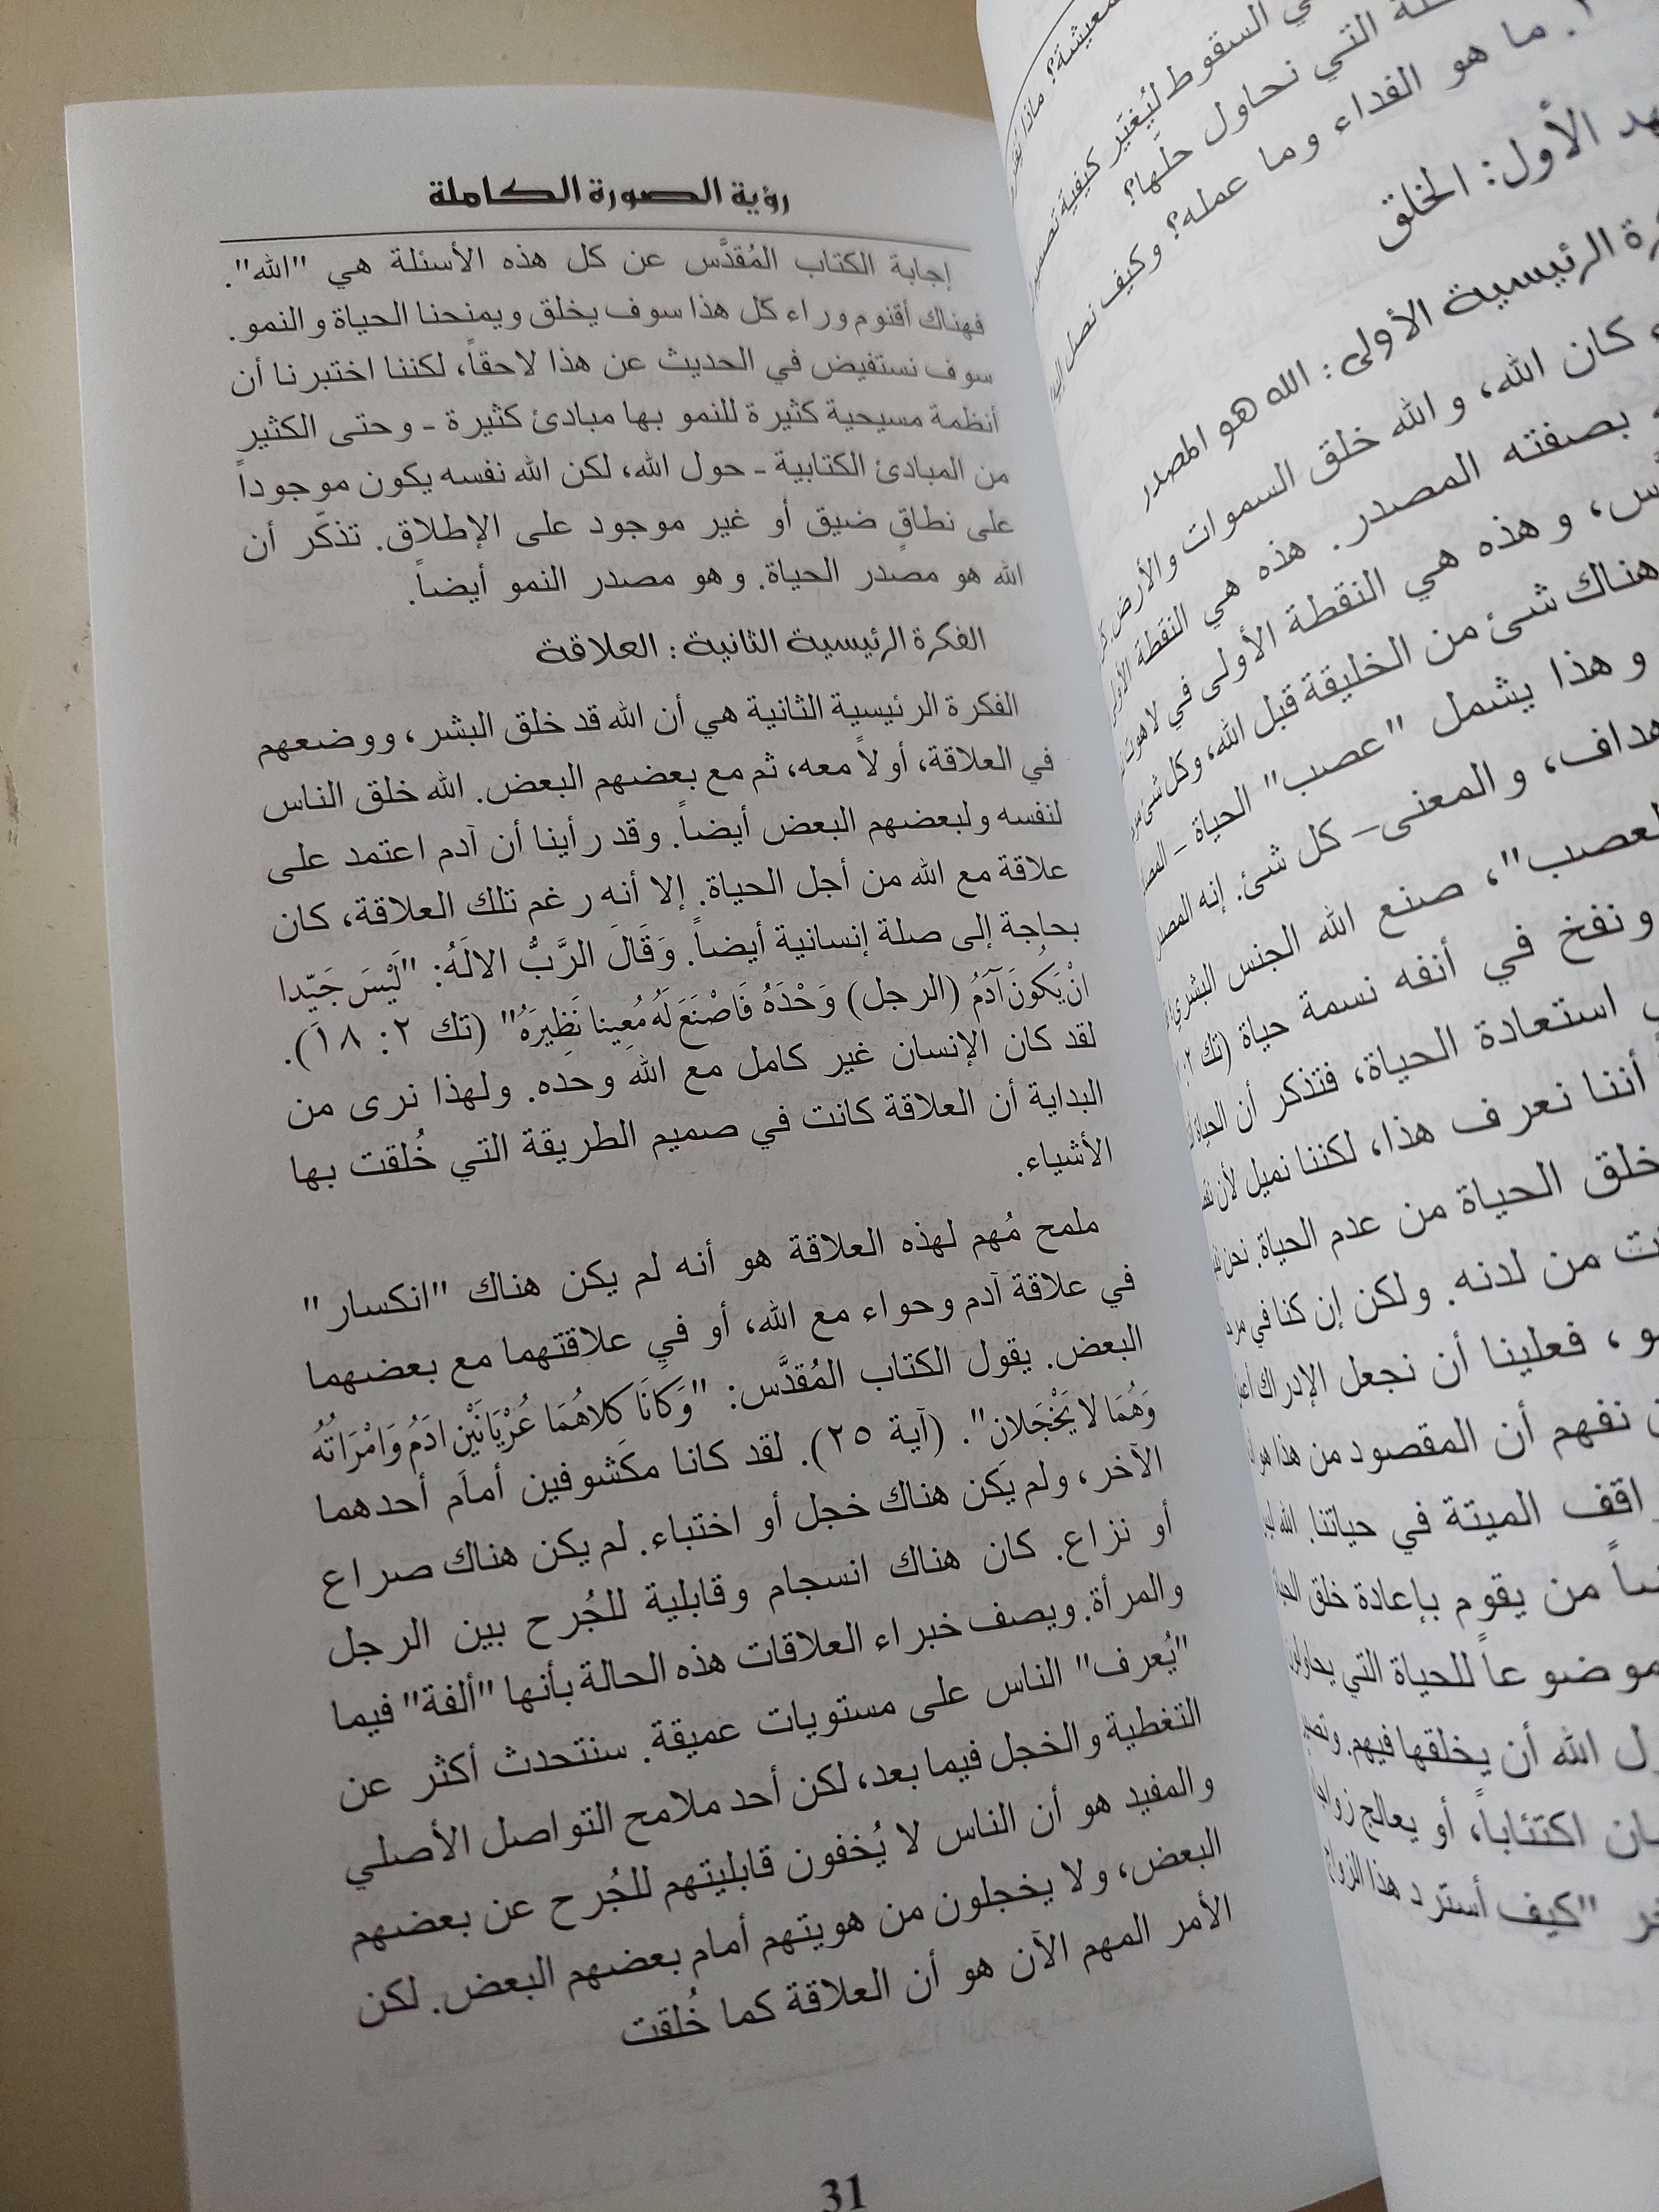 السقوط ليُغيّر كيفية
التي نحاول حلّها؟
ما هو الفداء وما عمله؟ وكيف نصل
الأول: الخلق
الرئيسية الأولى: الله هو المصدر
كان الله، والله خلق السموات والأرض.
بصفته المصدر. هذه هي النقطة
وهذه هي النقطة الأولى في
هناك شئ من الخليقة قبل الله، وكل شئ
وهذا يشمل "عصب" الحياة –
والمعنى – كل شئ. إنه المصدر
صنع الله الجنس البشري
ونفخ في أنفه نسمة حياة (تك ٢:
استعادة الحياة، فتذكر أن الحياة
أننا نعرف هذا، لكننا نميل لأن
خلق الحياة من عدم الحياة. نحن
من لدنه. ولكن إن كنا في
فعلينا أن نجعل الإدراك
نفهم أن المقصود من هذا هو
الميتة في حياتنا. الله
من يقوم بإعادة خلق
للحياة التي يحاولون
الله أن يخلقها فيهم.
اكتئاباً، أو يعالج
"كيف أسترد هذا الزواج
رؤية الصورة الكاملة
إجابة الكتاب المُقدَّس عن كل هذه الأسئلة هي "الله".
فهناك أقنوم وراء كل هذا سوف يخلق ويمنحنا الحياة والنمو.
سوف نستفيض في الحديث عن هذا لاحقاً، لكننا اختبرنا أن
أنظمة مسيحية كثيرة للنمو بها مبادئ كثيرة - وحتى الكثير
من المبادئ الكتابية - حول الله، لكن الله نفسه يكون موجوداً
على نطاقٍ ضيق أو غير موجود على الإطلاق. تذكّر أن
الله هو مصدر الحياة. وهو مصدر النمو أيضاً.
الفكرة الرئيسية الثانية: العلاقة
الفكرة الرئيسية الثانية هي أن الله قد خلق البشر، ووضعهم
في العلاقة، أولاً معه، ثم مع بعضهم البعض. الله خلق الناس
لنفسه ولبعضهم البعض أيضاً. وقد رأينا أن آدم اعتمد على
علاقة مع الله من أجل الحياة. إلا أنه رغم تلك العلاقة، كان
بحاجة إلى صلة إنسانية أيضاً. وَقَالَ الرَّبُّ الالَهُ: "لَيْسَ جَيّدا
انْ يَكُونَ آدَمُ (الرجل) وَحْدَهُ فَاصْنَعَ لَهُ مُعِينا نَظِيرَهُ" (تك ٢: ١٨).
لقد كان الإنسان غير كامل مع الله وحده. ولهذا نرى من
البداية أن العلاقة كانت في صميم الطريقة التي خُلقت بها
الأشياء.
ملمح مُهم لهذه العلاقة هو أنه لم يكن هناك "انكسار"
في علاقة آدم وحواء مع الله، أو في علاقتهما مع بعضهما
البعض. يقول الكتاب المُقدَّس: "وَكَانَا كِلاهُمَا عُرْيَانَيْنِ ادَمُ وَامْرَاتُهُ
وَهُمَا لا يَخْجَلانِ". (آية ٢٥). لقد كانا مكشوفين أمام أحدهما
الآخر، ولم يكن هناك خجل أو اختباء. لم يكن هناك صراع
أو نزاع. كان هناك انسجام وقابلية للجُرح بين الرجل
والمرأة. ويصف خبراء العلاقات هذه الحالة بأنها "ألفة" فيما
"يُعرف" الناس على مستويات عميقة. سنتحدث أكثر عن
التغطية والخجل فيما بعد، لكن أحد ملامح التواصل الأصلي
والمفيد هو أن الناس لا يُخفون قابليتهم للجُرح عن بعضهم
البعض، ولا يخجلون من هويتهم أمام بعضهم البعض. لكن
الأمر المهم الآن هو أن العلاقة كما خُلقت
31